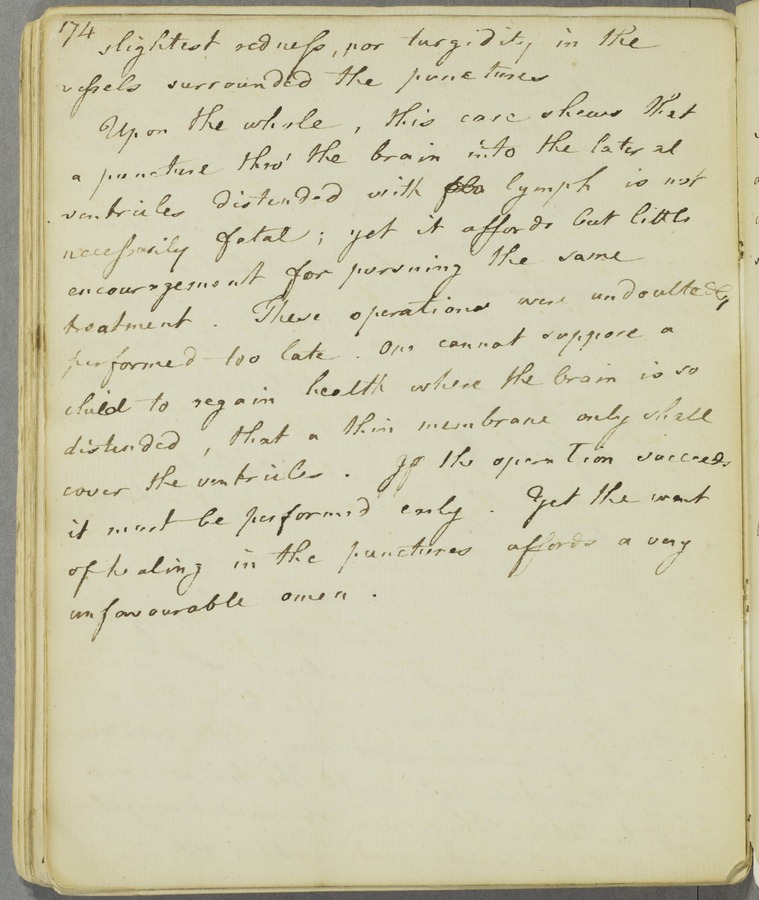 174
slightest redness, nor turgidity in the
vessels surrounded the punctures
Upon the whole, this case shews that
a puncture thro' the brain into the lateral
ventricles distended with lymph is not
necessarily fatal; yet it affords but little
encouragement for pursuing the same
treatment. These operations were undoubtedly
performed too late. One cannot suppose a
child to regain health where the brain is so
distended, that a thin membrane only shall
cover the ventricles. If the operation succeeds
it must be performed early. Yet the want
of healing in the punctures affords a very
unfavourable omen.